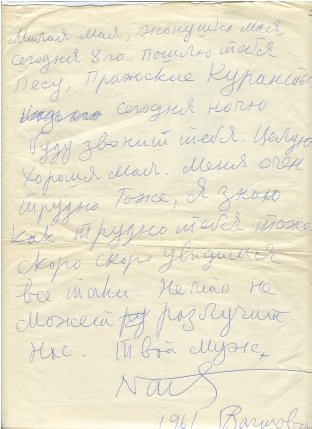 Милая мая, жонушка мая,
сегодня 8го. Пошлю тебя
Песу, Пражские Куранты
сегодня ночю
буду звонит тебя. Целую
Хорошя мая. Меня очен
трудно тоже, я знаю
как трудно тебя тоже
скоро скоро увидимся
все таки. Нечто не
может разлучит
нас. Твой муж,
1961